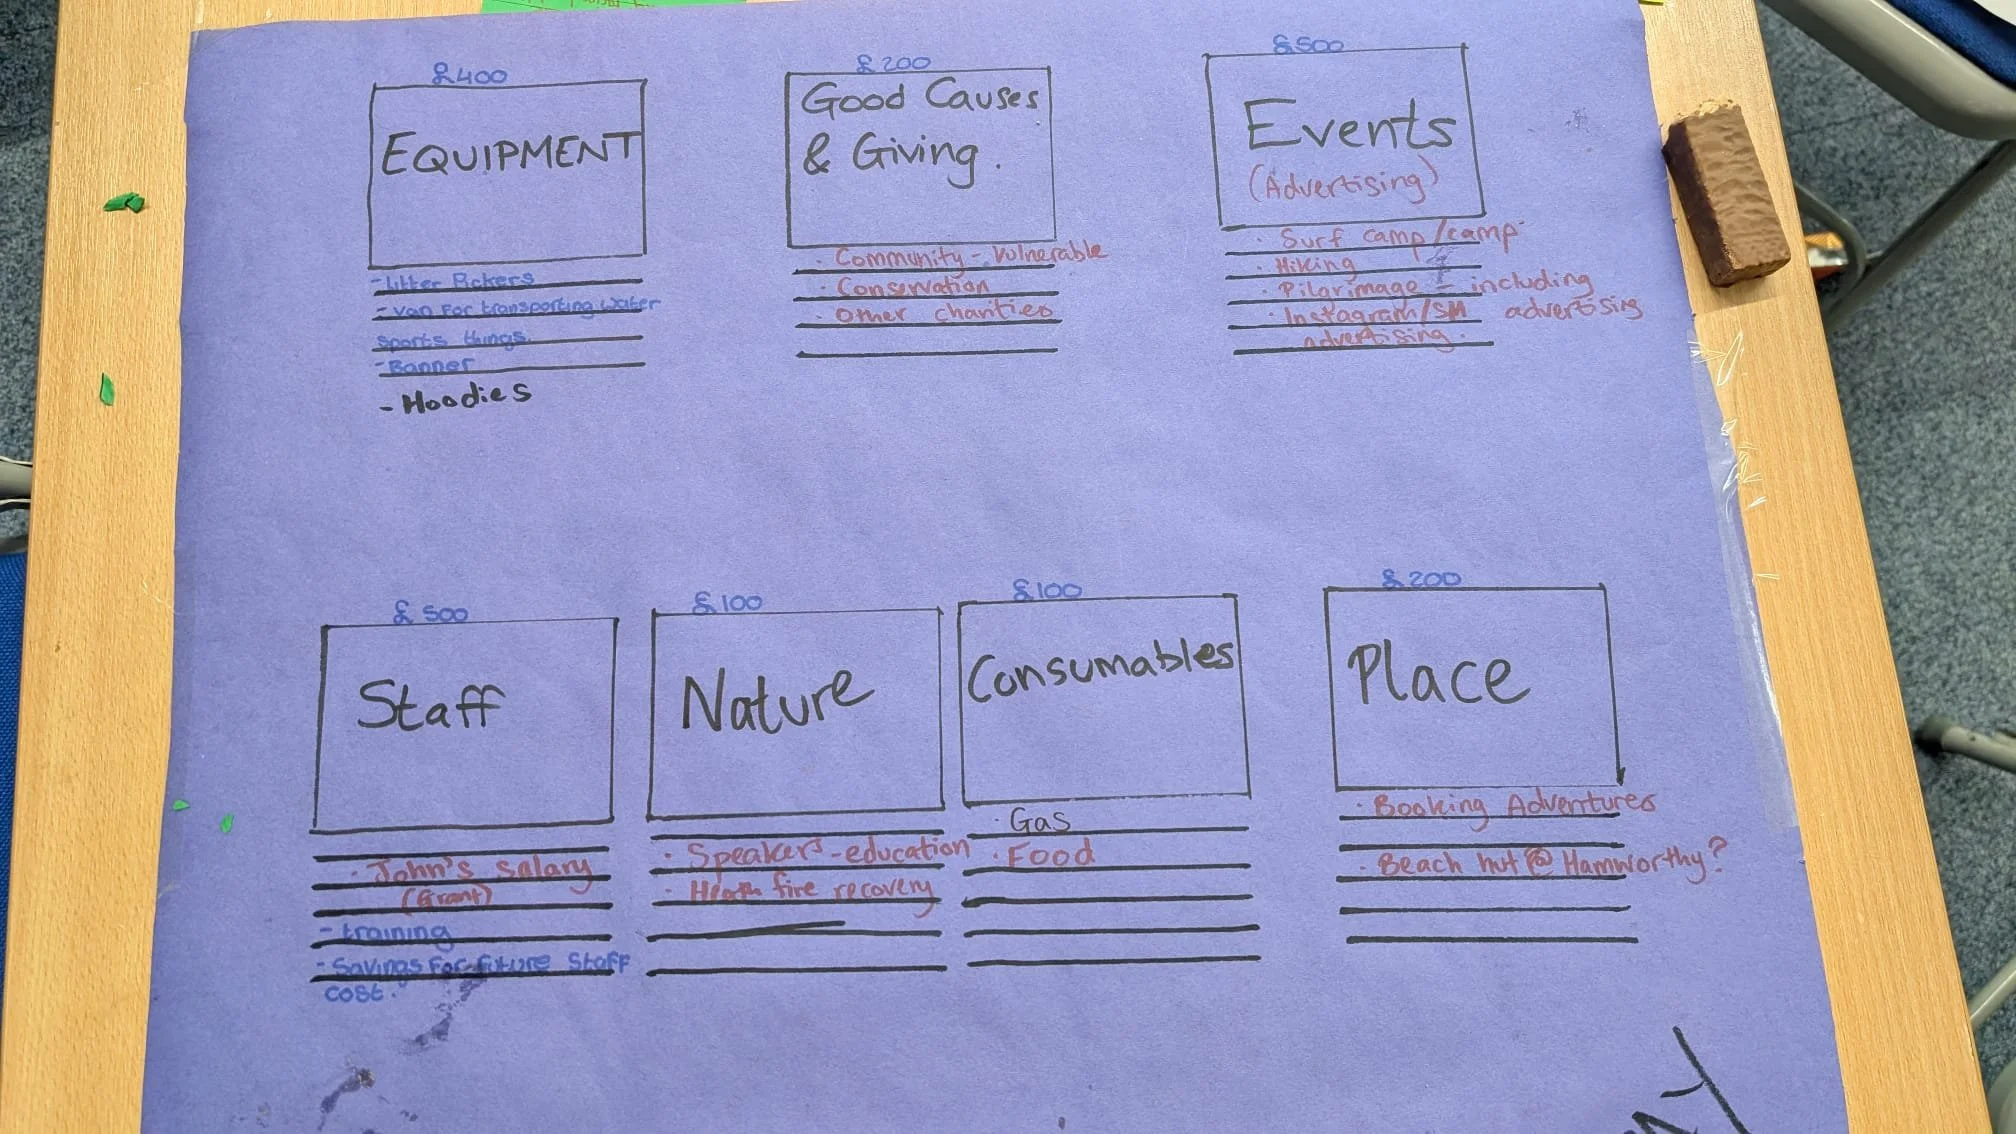 £400
EQUIPMENT
- Litter Pickers
- Van for transporting water
sports things.
- Banner
- Hoodies
£200
Good Causes
& Giving.
· Community - Vulnerable
· Conservation
· Other charities
£500
Events
(Advertising)
· Surf camp/camp
· Hiking
· Pilgrimage - including
advertising
· Instagram/SM
advertising.
£500
Staff
· John's salary
(Grant)
- training
- Savings for future Staff
cost.
£100
Nature
· Speakers - education
· Heath fire recovery
£100
Consumables
· Gas
· Food
£200
Place
· Booking Adventures
· Beach hut @ Hamworthy?